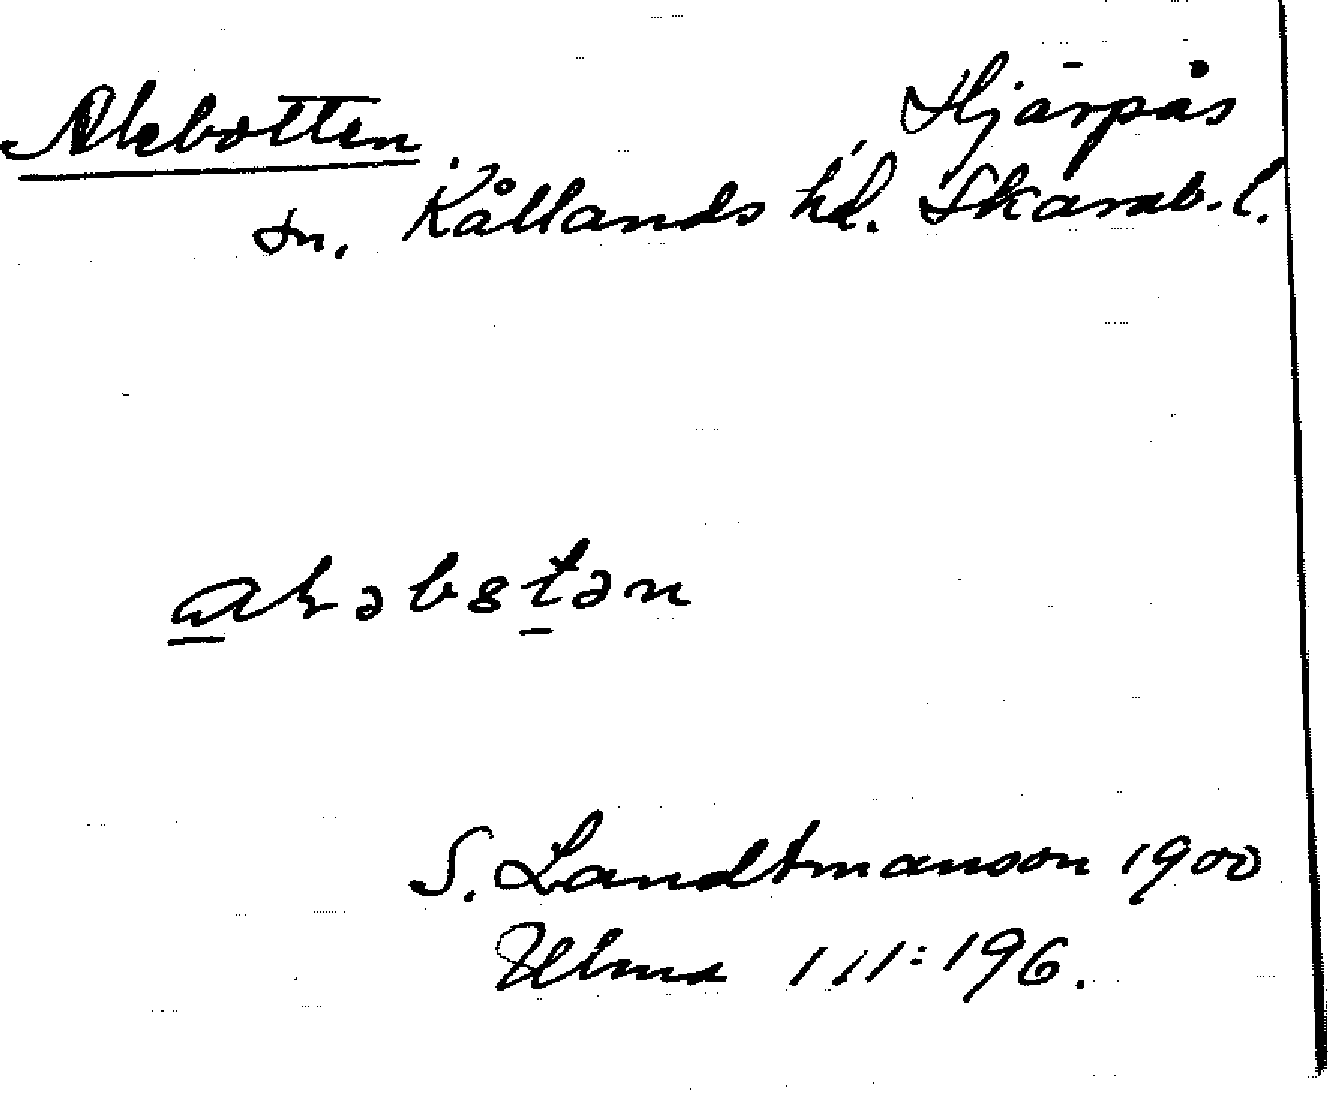 Akebotten Hjärpås
tn. Kållands hd. Skarab. l.
akəbȣtən
S. Landtmanson 1900
Ulma 111:196.